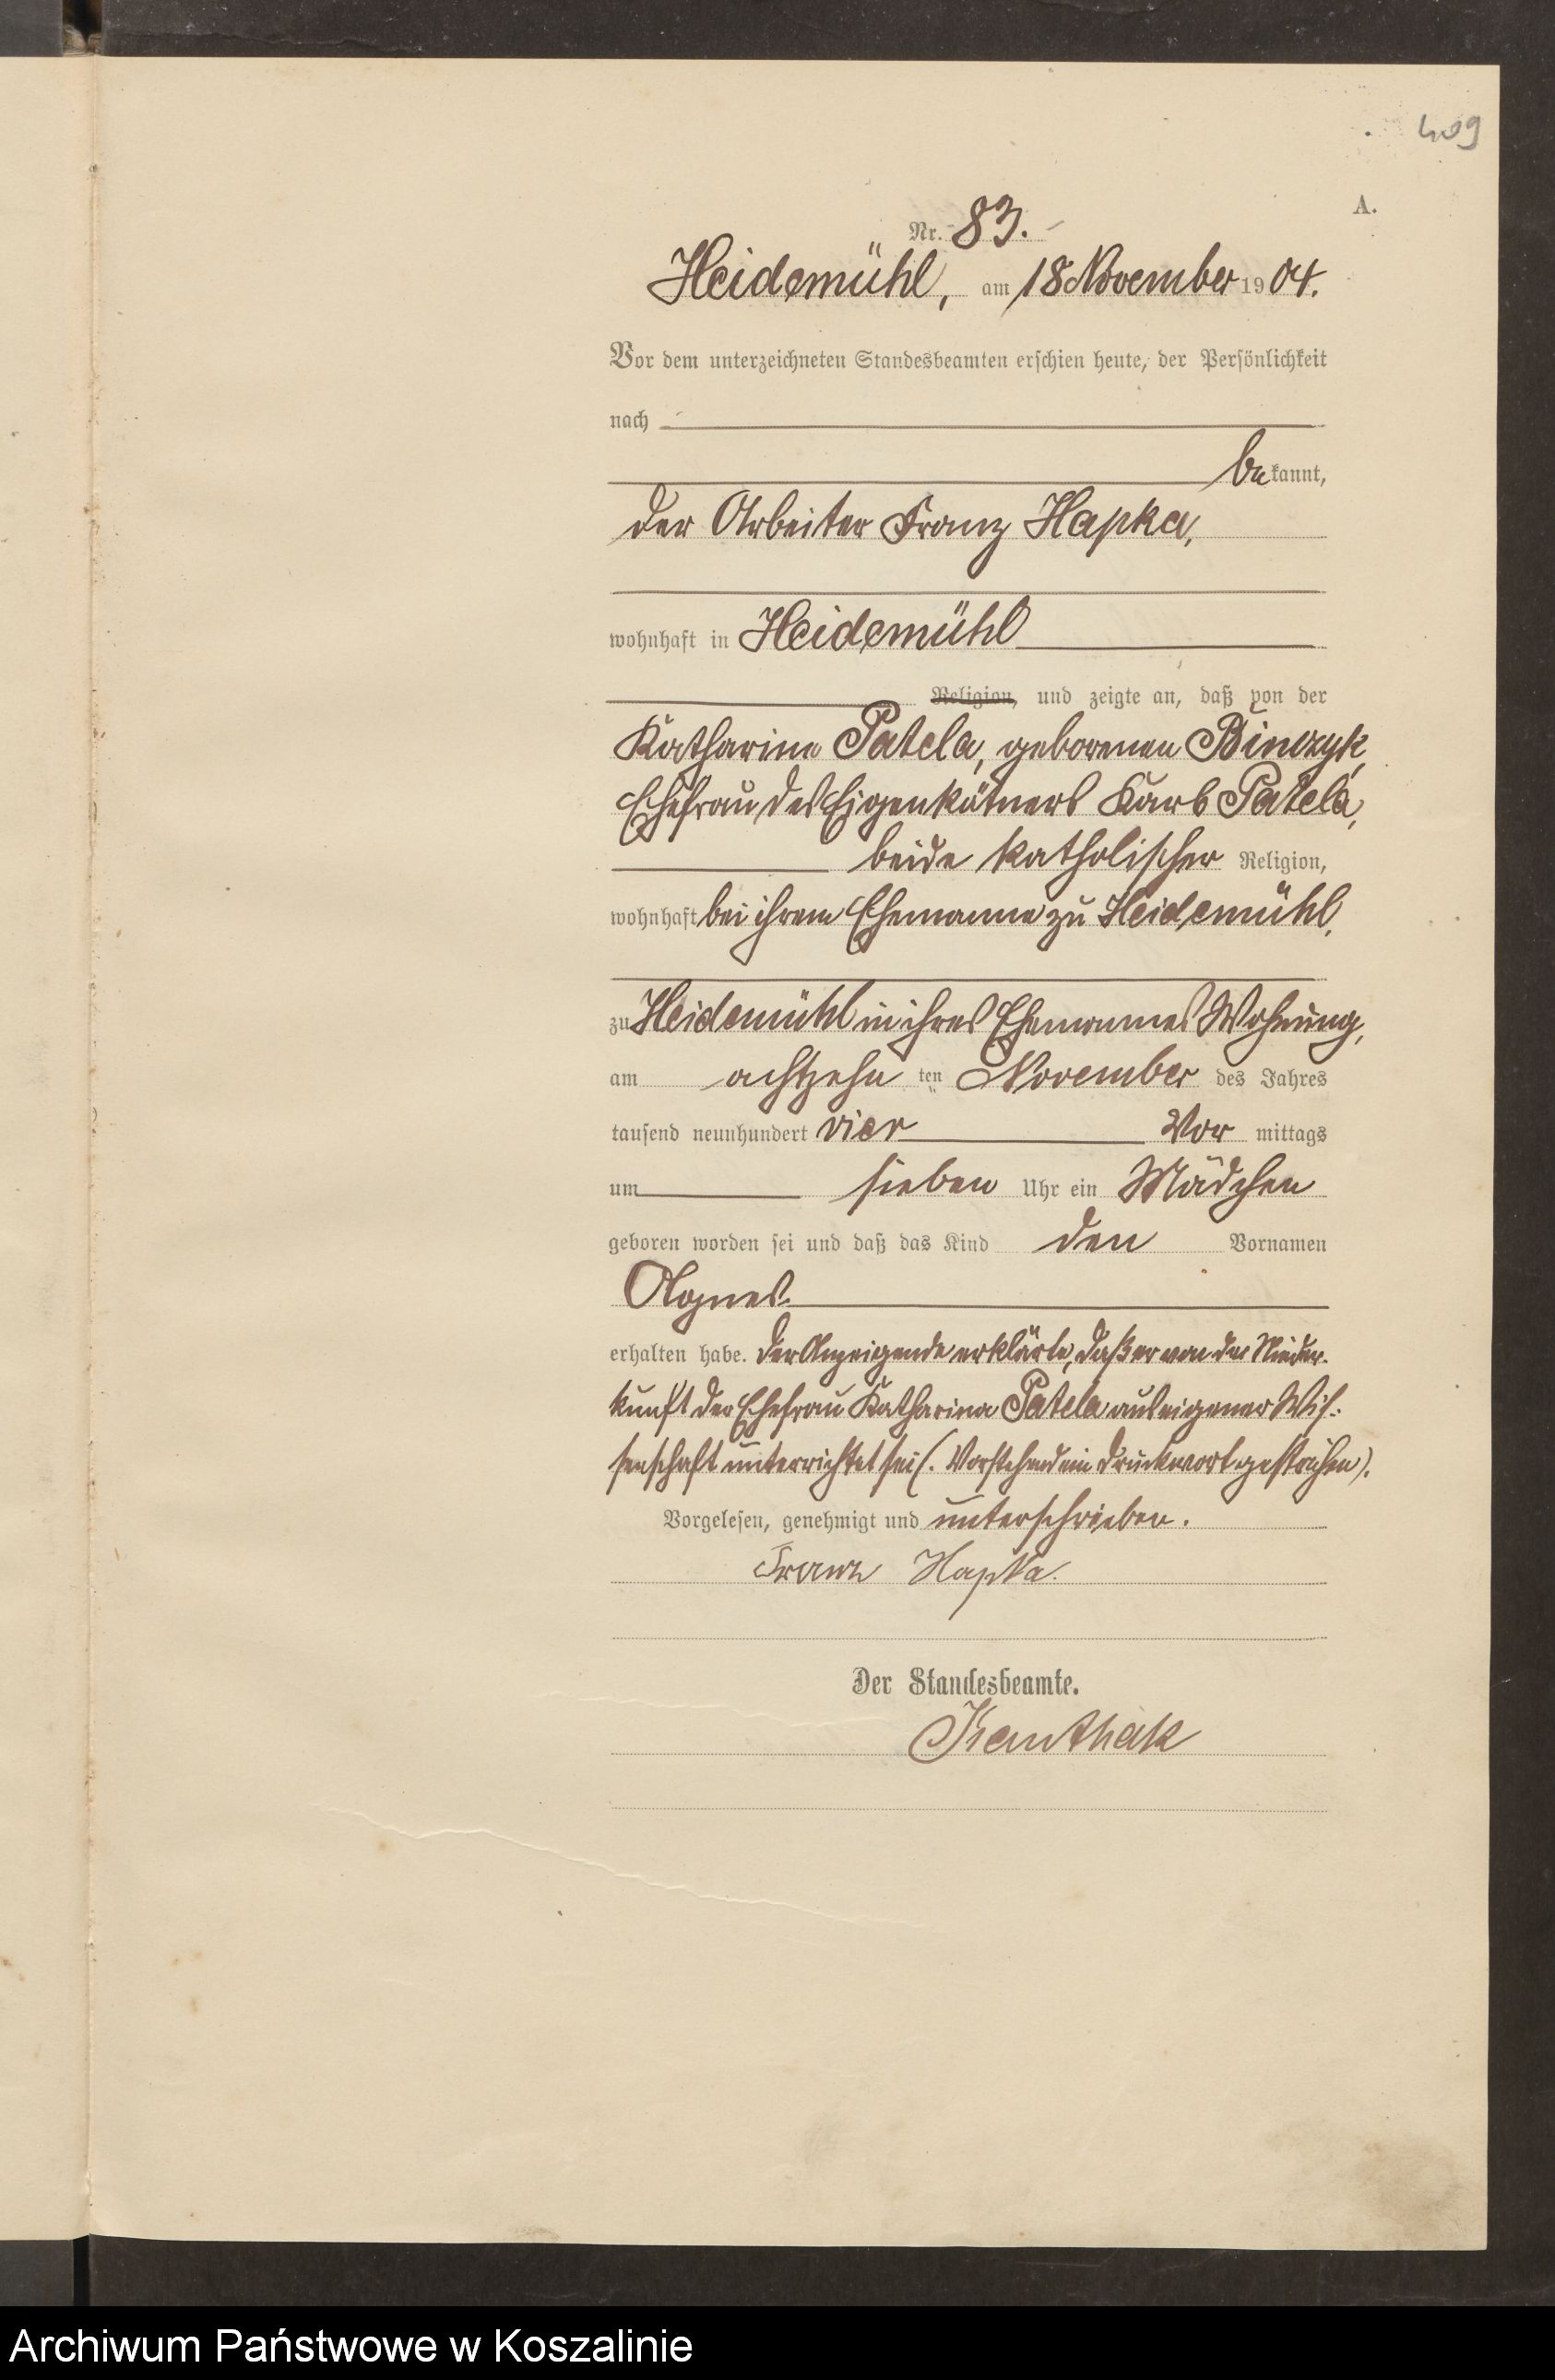 409
A.
Nr. 83.
Heidemühl, am 18 November 1904.
Vor dem unterzeichneten Standesbeamten erschien heute, der Persönlichkeit
nach
bekannt,
der Arbeiter Franz Hapka,
wohnhaft in Heidemühl
Religion, und zeigte an, daß von der
Katharina Patela, geborenen Binczyk,
Ehefrau des Eigenkätners Karl Patela,
beide katholischer Religion,
wohnhaft bei ihrem Ehemanne zu Heidemühl,
zu Heidemühl in ihres Ehemannes Wohnung,
am achtzehn ten November des Jahres
tausend neunhundert vier Vor mittags
um sieben Uhr ein Mädchen
geboren worden sei und daß das Kind den Vornamen
Agnes
erhalten habe. Der Anzeigende erklärte, daß er von der Nieder-
kunft der Ehefrau Katharina Patela aus eigener Wis-
senschaft unterrichtet sei (. Vorstehend ein Druckwort gestrichen).
Vorgelesen, genehmigt und unterschrieben.
Franz Hapka.
Der Standesbeamte.
Kanthak
Archiwum Państwowe w Koszalinie